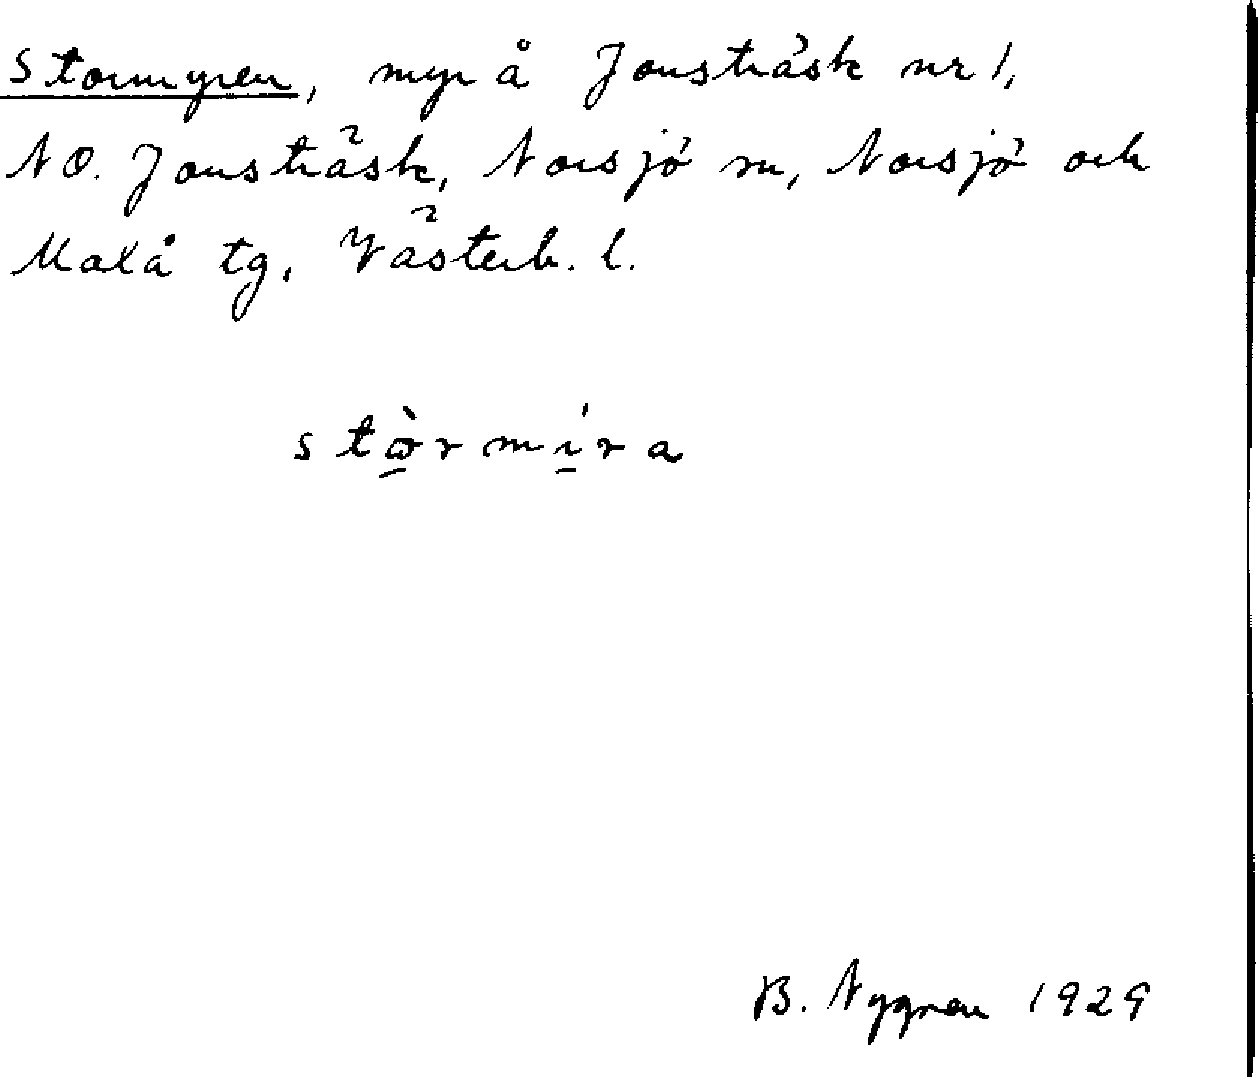 Stormyren, myr å Jonsträsk nr 1,
NO. Jonsträsk, Norsjö sn, Norsjö och
Malå tg, Västerb. l.
stòrmíra
B. Nygren 1929